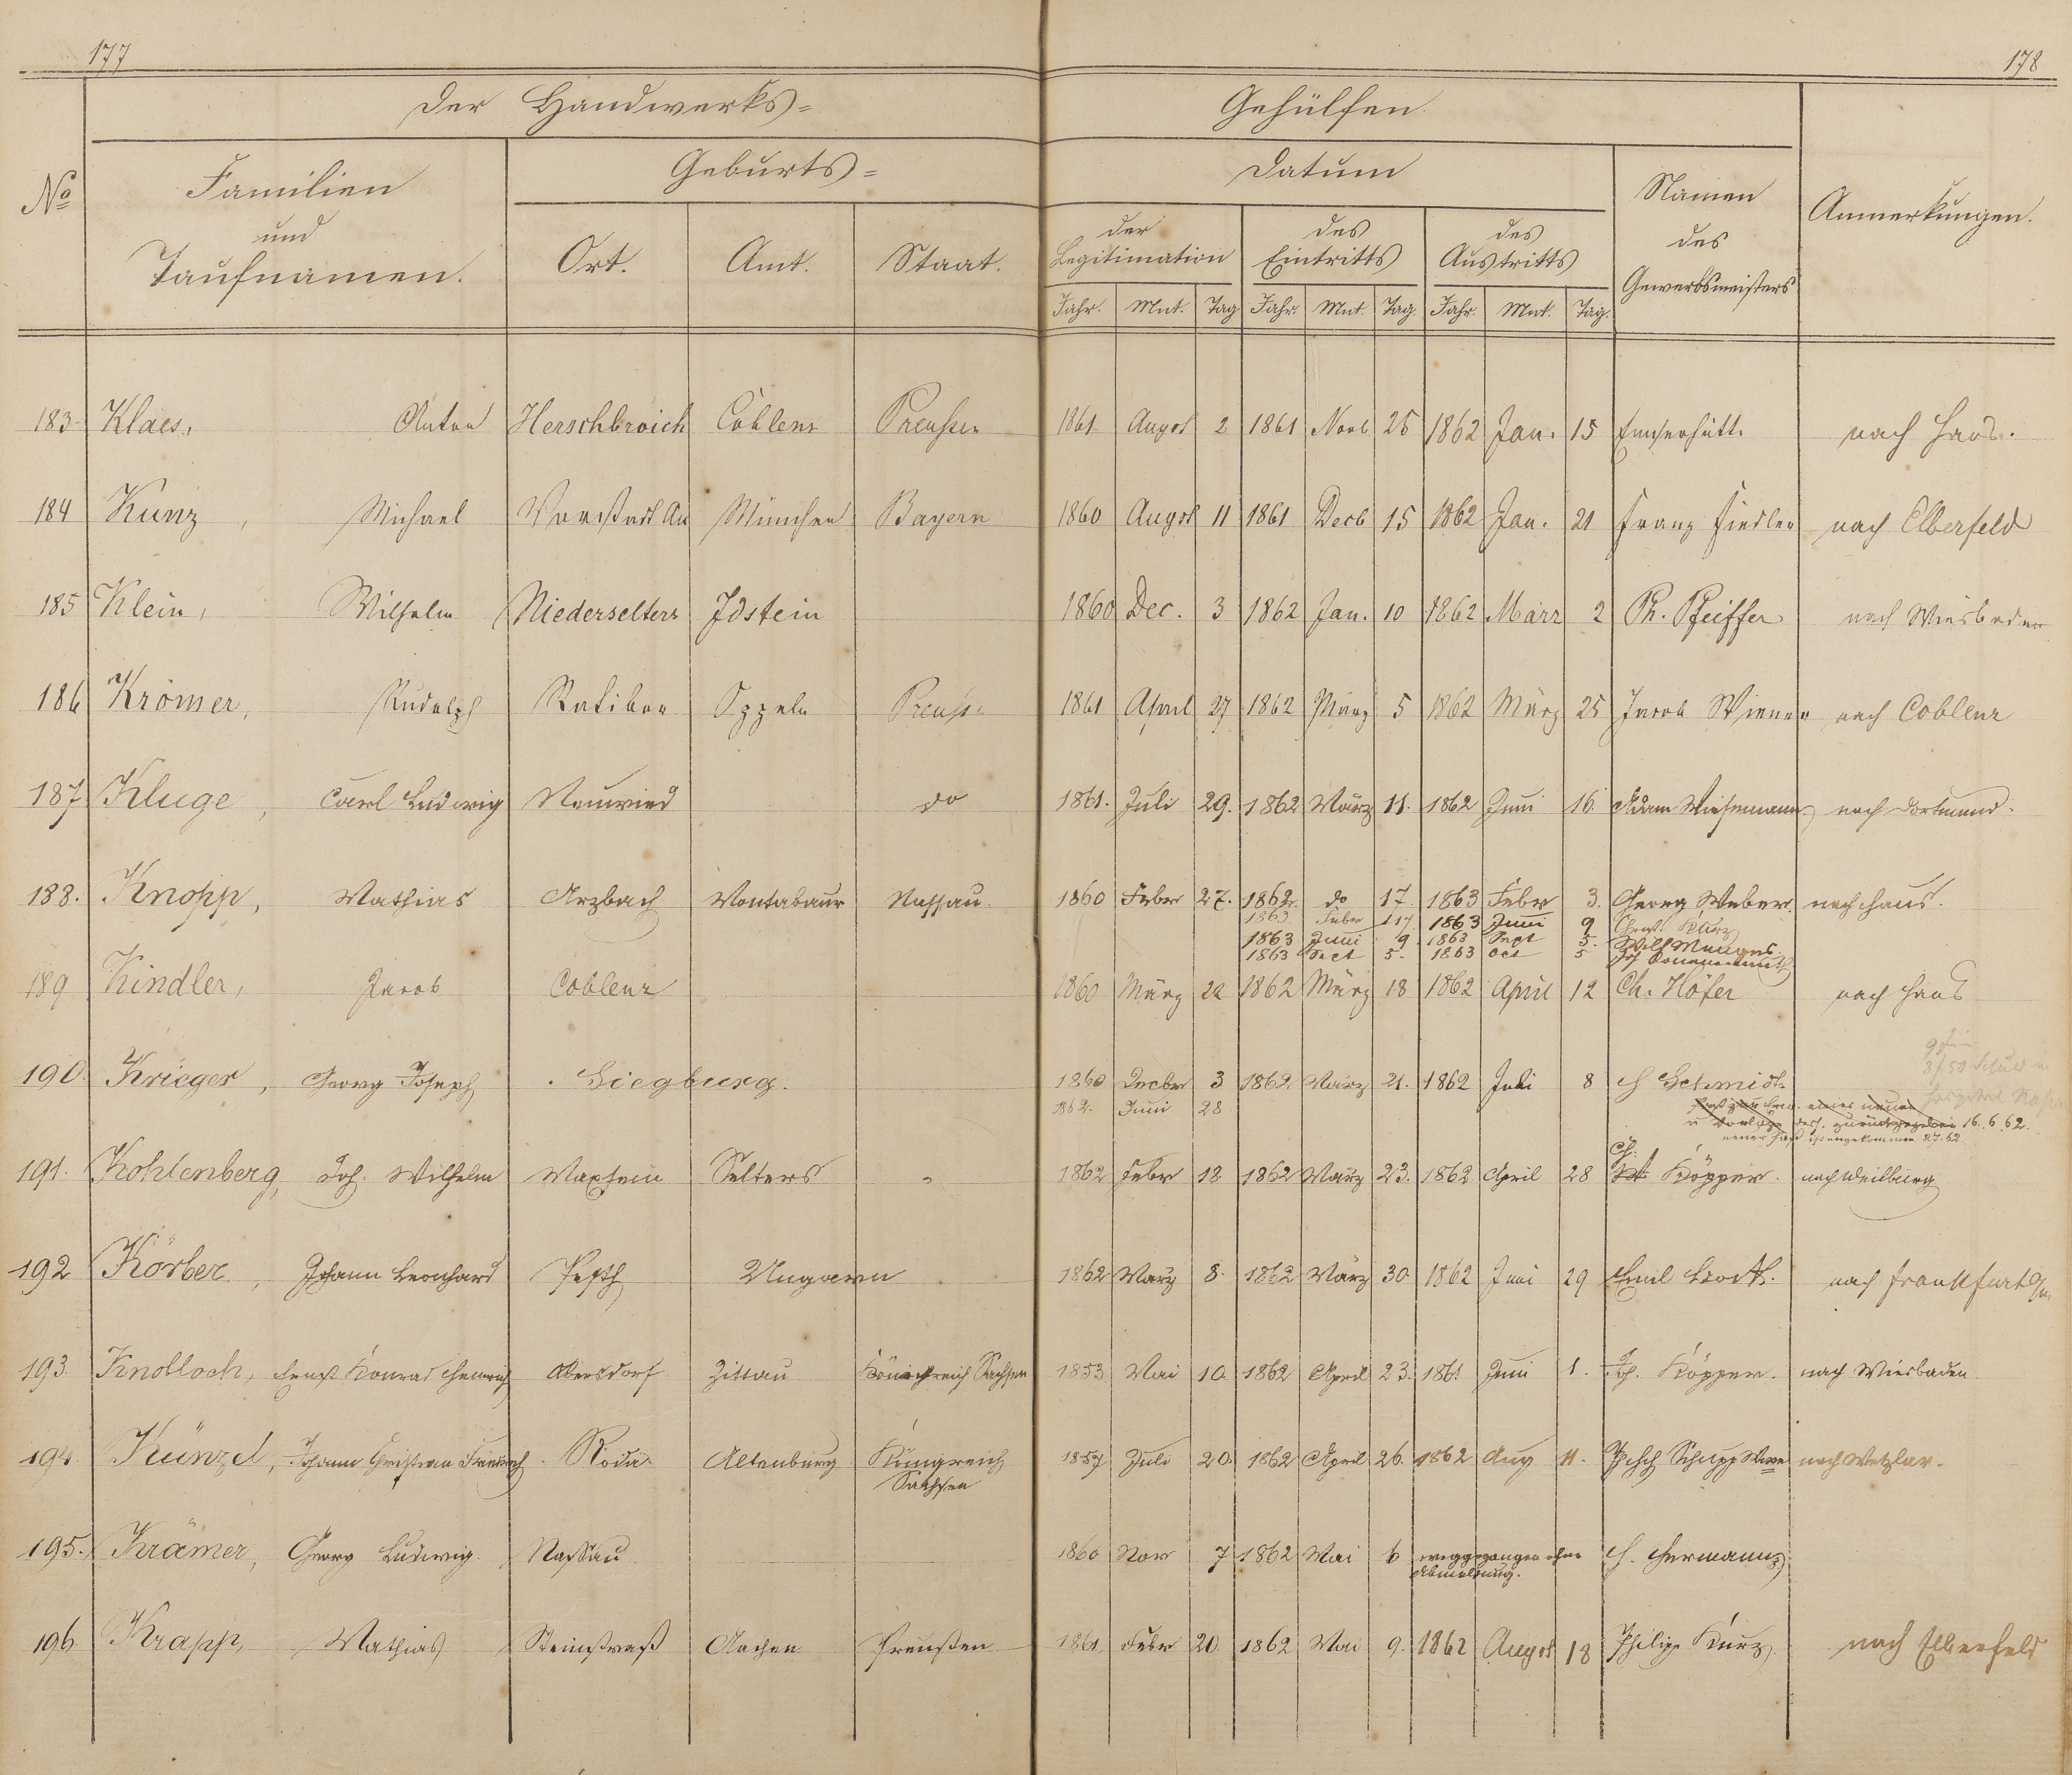 177
178
Der Handwerks=
Gehülfen.
No
Familien
und
Taufnamen.
Geburts=
Ort.
Amt.
Staat.
Datum
der
Legitimation
des
Eintritts
des
Austritts
Jahr. Mnt. Tag Jahr. Mnt. Tag. Jahr. Mnt. Tag.
Namen
des
Gewerbsmeisters
Anmerkungen.
183. Klaes, Anton Herschbroich Coblenz Preußen 1861 Augst 2 1861 Novb 25 1862 Jan. 15 Emserhütte nach Haus.
184 Kunz, Michael Vorstadt Au München Bayern 1860 Augst 11 1861 Decb 15 1862 Jan. 21 Franz Fiedler nach Elberfeld
185 Klein, Wilhelm Niederselters Idstein 1860 Dec. 3 1862 Jan. 10 1862 März 2 Ph. Pfeiffer nach Wiesbaden
186 Krömer, Rudolph Ratibor Oppeln Preuß. 1861 April 27 1862 März 5 1862 März 25 Jacob Wiener nach Coblenz
187 Kluge, Carl Ludwig Neuwied do 1861. Juli 29. 1862 März 11. 1862 Juni 16. Adam Wiesemann nach Dortmund.
188. Knopp, Mathias Arzbach Montabaur Nassau. 1860 Febr 27. 1862. do 17. 1863 Febr 3. Georg Weber. nach Haus.
1863 Febr 17 1863 Juni 9 Christ. Kurz
1863 Juni 9 1863 Sept 5. Wilh Menges.
1863 Sept 5. 1863 Oct 5 Joh
189 Kindler, Jacob Coblenz 1860 März 22 1862 März 18 1862 April 12 Ch. Höfer nach Haus
190. Krieger, Georg Joseph Siegburg. 1860 Decbr 3 1862 März 21. 1862 Juli 8 H Schmidt
1862. Juni 28
eines neuen
u Vorlage desh. zurückgegeben 16.6.62.
neuer Paß ist angekommen 2.7.62
191. Kohlenberg, Joh. Wilhelm Maxsain Selters " 1862 Febr 18. 1862 März 23. 1862 April 28 Ch. Köpper. nach Weilburg
192 Körber, Johann Leonhard Pesth Ungarn 1862 März 8. 1862 März 30. 1862 Juni 29 Emil nach Frankfurt a/m
193. Knobloch, Ernst Konrad Heinrich Obersdorf Zittau Königreich Sachsen 1853 Mai 10. 1862 April 23. 1861 Juni 1. Joh. Köpper. nach Wiesbaden.
194. Künzel, Johann Christian Friedrich Roda Altenburg Königreich 1857 Juli 20. 1862 April 26. 1862 Aug 11. Schupp Wwe nach Wetzlar.
Sachsen
195. Krämer, Georg Ludwig. Nassau. 1860 Nov 7 1862 Mai 6 weggegangen ohne H. Hermanns
Abmeldung.
196. Krapp, Mathias Steinstraß Aachen Preußen 1861. Febr 20. 1862 Mai 9. 1862 Augst 18 Philipp Kurz. nach Elberfeld